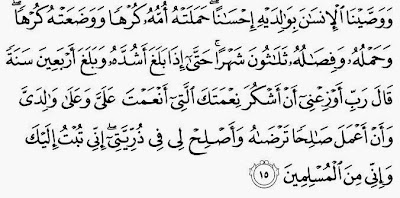 وَوَصَّيْنَا ٱلْإِنسَـٰنَ بِوَٰلِدَيْهِ إِحْسَـٰنًا ۖ حَمَلَتْهُ أُمُّهُۥ كُرْهًا وَوَضَعَتْهُ كُرْهًا ۖ
وَحَمْلُهُۥ وَفِصَـٰلُهُۥ ثَلَـٰثُونَ شَهْرًا ۚ حَتَّىٰٓ إِذَا بَلَغَ أَشُدَّهُۥ وَبَلَغَ أَرْبَعِينَ سَنَةً
قَالَ رَبِّ أَوْزِعْنِىٓ أَنْ أَشْكُرَ نِعْمَتَكَ ٱلَّتِىٓ أَنْعَمْتَ عَلَىَّ وَعَلَىٰ وَٰلِدَىَّ
وَأَنْ أَعْمَلَ صَـٰلِحًا تَرْضَىٰهُ وَأَصْلِحْ لِى فِى ذُرِّيَّتِىٓ ۖ إِنِّى تُبْتُ إِلَيْكَ
وَإِنِّى مِنَ ٱلْمُسْلِمِينَ ١٥